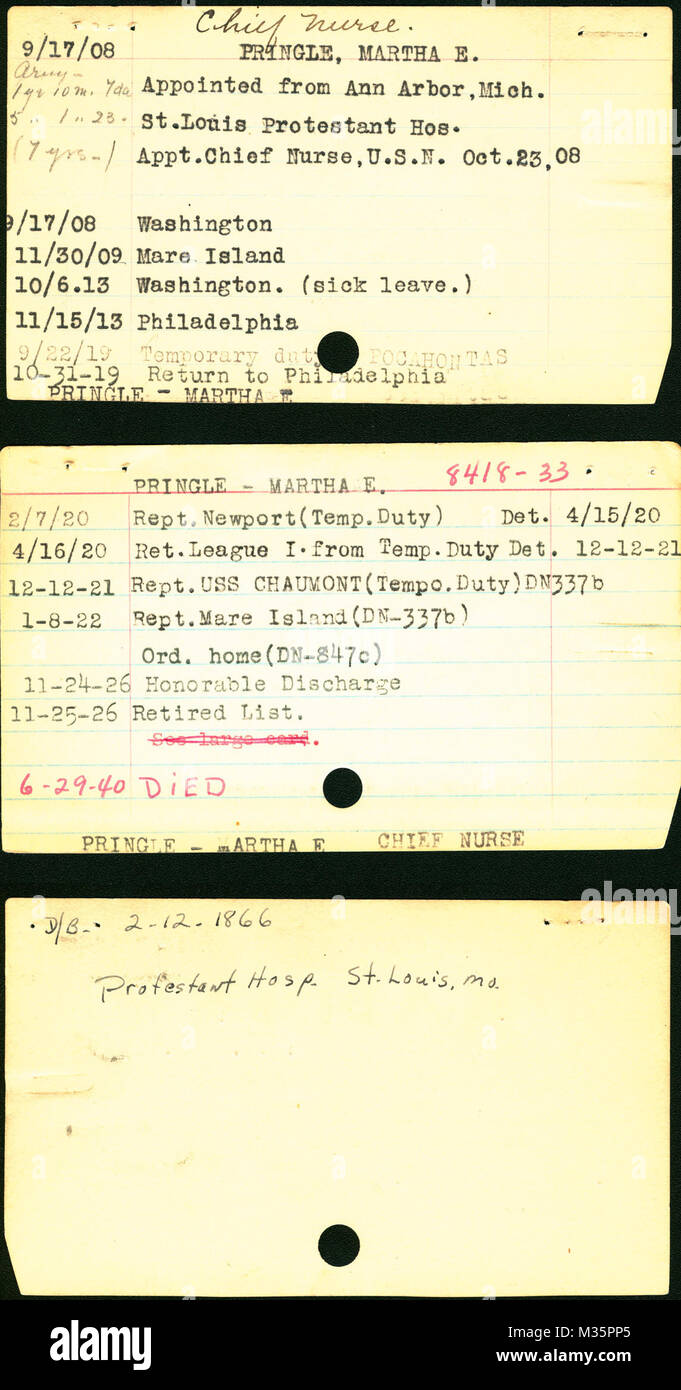 Chief Nurse.
9/17/08 PRINGLE, MARTHA E.
Army-
1 yr 10 m. 7da Appointed from Ann Arbor,Mich.
5 " 1 " 23 - St.Louis Protestant Hos.
(7 yrs-) Appt.Chief Nurse,U.S.N. Oct.23,08
9/17/08 Washington
11/30/09 Mare Island
10/6.13 Washington. (sick leave.)
11/15/13 Philadelphia
9/22/19 Temporary duty POCAHONTAS
10-31-19 Return to Philadelphia
PRINGLE - MARTHA E
PRINGLE - MARTHA E. 8418-33
2/7/20 Rept.Newport(Temp.Duty) Det. 4/15/20
4/16/20 Ret.League I.from Temp.Duty Det. 12-12-21
12-12-21 Rept.USS CHAUMONT(Tempo.Duty)DN337b
1-8-22 Rept.Mare Island(DN-337b)
Ord. home(DN-847c)
11-24-26 Honorable Discharge
11-25-26 Retired List.
See large card.
6-29-40 DiED
PRINGLE - mARTHA E CHIEF NURSE
D/B- 2-12-1866
Protestant Hosp. St. Louis, mo.
alamy
alamy
alamy
Image ID: M35PP5
www.alamy.com